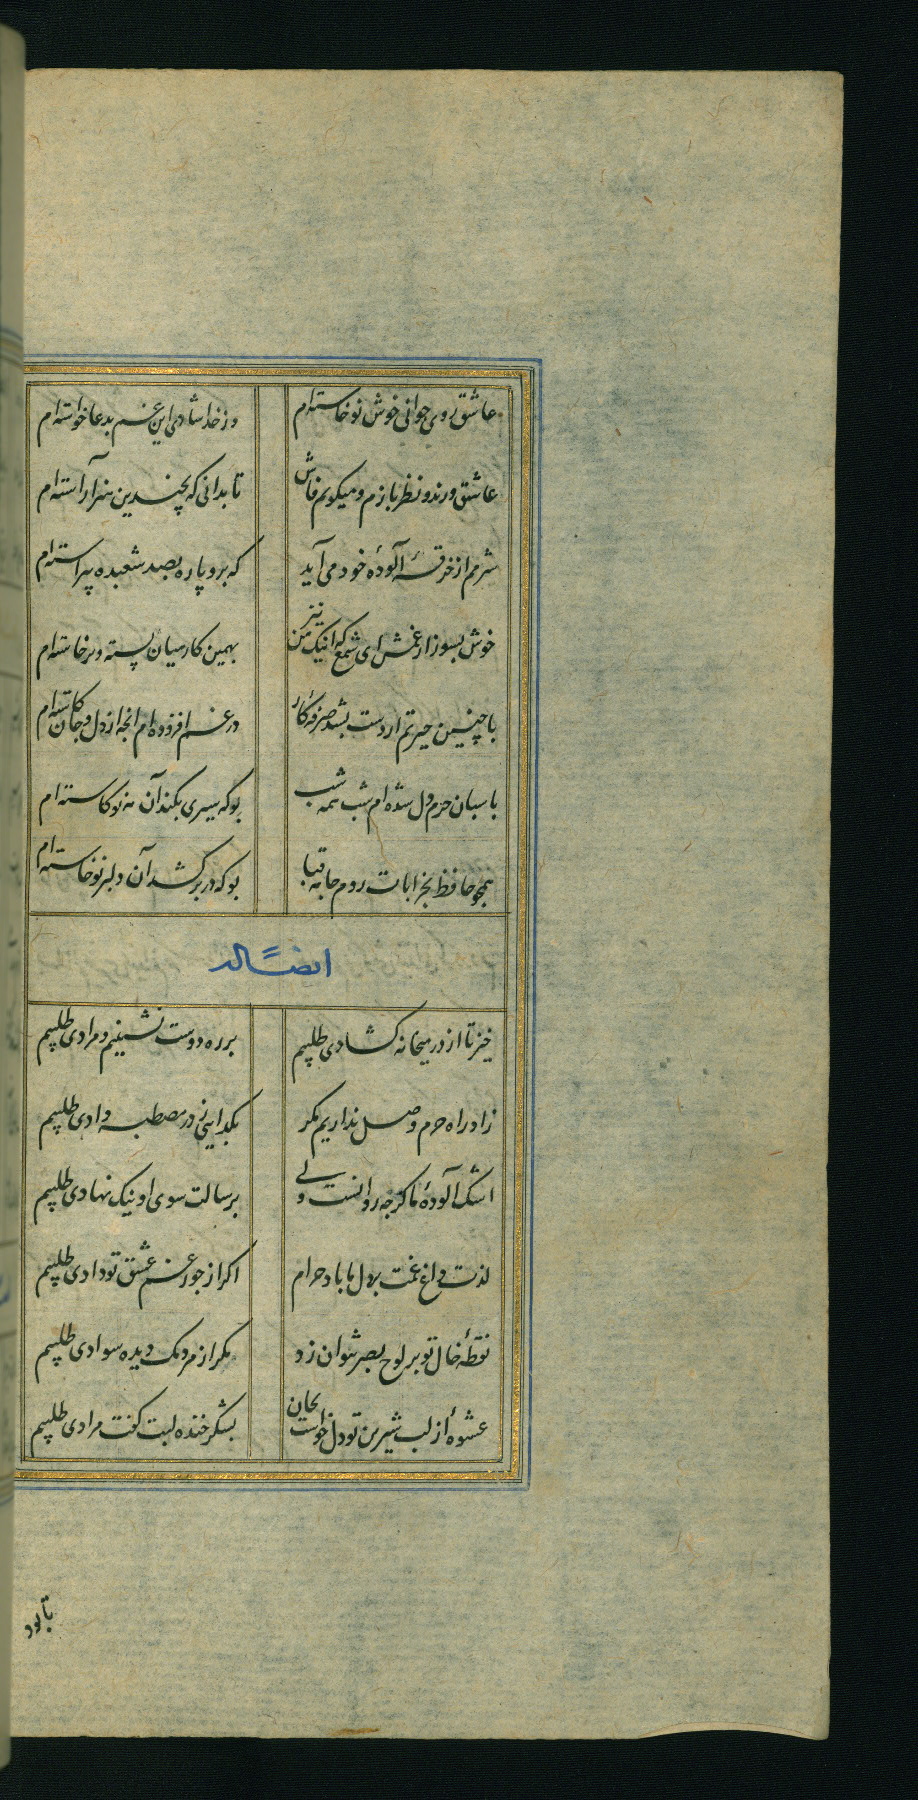 عاشق روی جوانی خوش نوخاسته‌ام وز خدا شادی این غم بدعا خواسته‌ام
عاشق و رند و نظربازم و میکویم فاش تا بدانی که بچندین هنر آراسته‌ام
شرمم از خرقهٔ آلودهٔ خود می‌آید که برو پاره بصد شعبده پیراسته‌ام
خوش بسوز از غمش ای شمع که اینک من نیز بهمین کار میان بسته و برخاسته‌ام
با چنین حیرتم از دست بشد صرفهٔ کار در غم افزوده‌ام انچه از دل و جان کاسته‌ام
پاسبان حرم دل شده‌ام شب همه شب بو که سیری بکند آن مه نو کاسته‌ام
همچو حافظ بخرابات روم جامه قبا بو که در بر کشد آن دلبر نوخاسته‌ام
ایضاً له
خیز تا از در میخانه کشادی طلبیم بر ره دوست نشینیم و مرادی طلبیم
زاد راه حرم وصل نداریم مکر بکدایی ز در مصطبه زادی طلبیم
اشک آلودهٔ ما کرچه روانست ولی برسالت سوی او نیک نهادی طلبیم
لذت داغ غمت بر دل ما باد حرام اکر از جور غم عشق تو دادی طلبیم
نقطهٔ خال تو بر لوح بصر نتوان زد مکر از مردمک دیده سوادی طلبیم
عشوهٔ از لب شیرین تو دل خواست بجان بشکر خنده لبت کفت مرادی طلبیم
تا بود